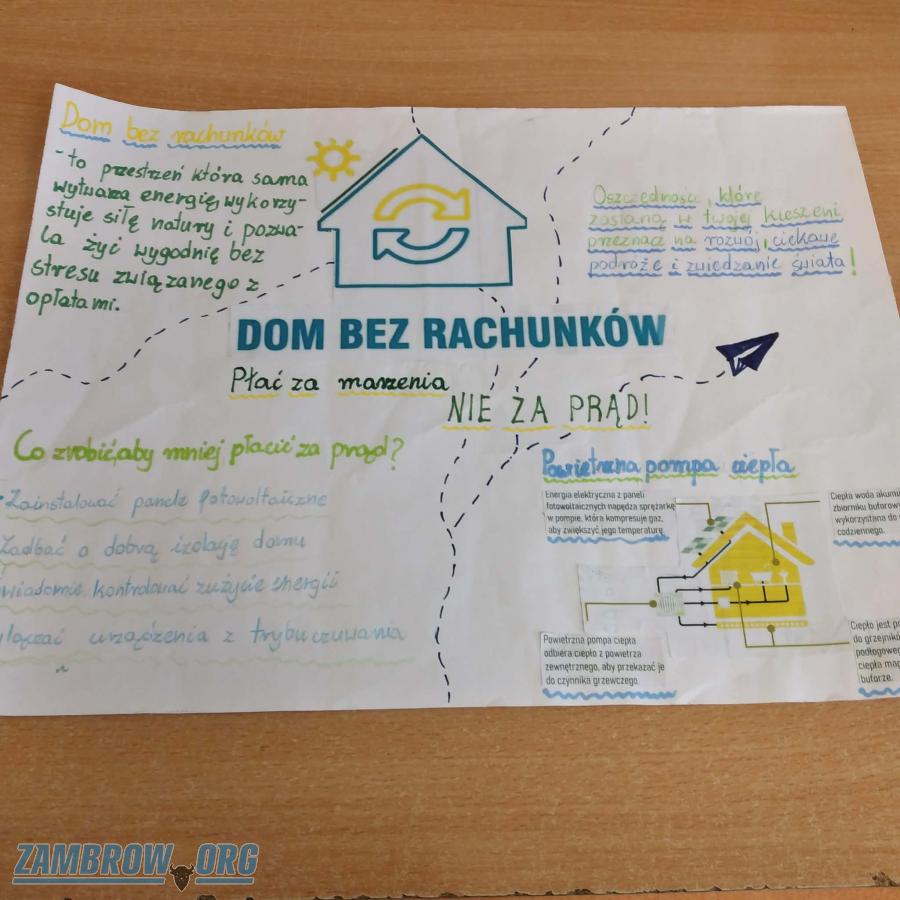 Dom bez rachunków
- to przestrzeń która sama
wytwarza energię, wykorzy-
stuje siłę natury i pozwa-
la żyć wygodnię bez
stresu związanego z
opłatami.
DOM BEZ RACHUNKÓW
Płać za marzenia
NIE ZA PRĄD!
Oszczędności, które
zostaną w twojej kieszeni
przeznacz na rozwój, ciekawe
podróże i zwiedzanie świata!
Co zrobić, aby mniej płacić za prąd?
Zainstalować panele fotowoltaiczne
Zadbać o dobrą izolację domu
wiadomie kontrolować zużycie energii
łączać urządzenia z trybu czuwania
Powietrzna pompa ciepła
Energia elektryczna z paneli
fotowoltaicznych napędza sprężarkę
w pompie, która kompresuje gaz,
aby zwiększyć jego temperaturę.
Ciepła woda akumu
zbiorniku buforow
wykorzystana do
codziennego.
Powietrzna pompa ciepła
odbiera ciepło z powietrza
zewnętrznego, aby przekazać je
do czynnika grzewczego.
Ciepło jest
do grzejnikó
podłogoweg
ciepła mag
buforze.
ZAMBROW.ORG